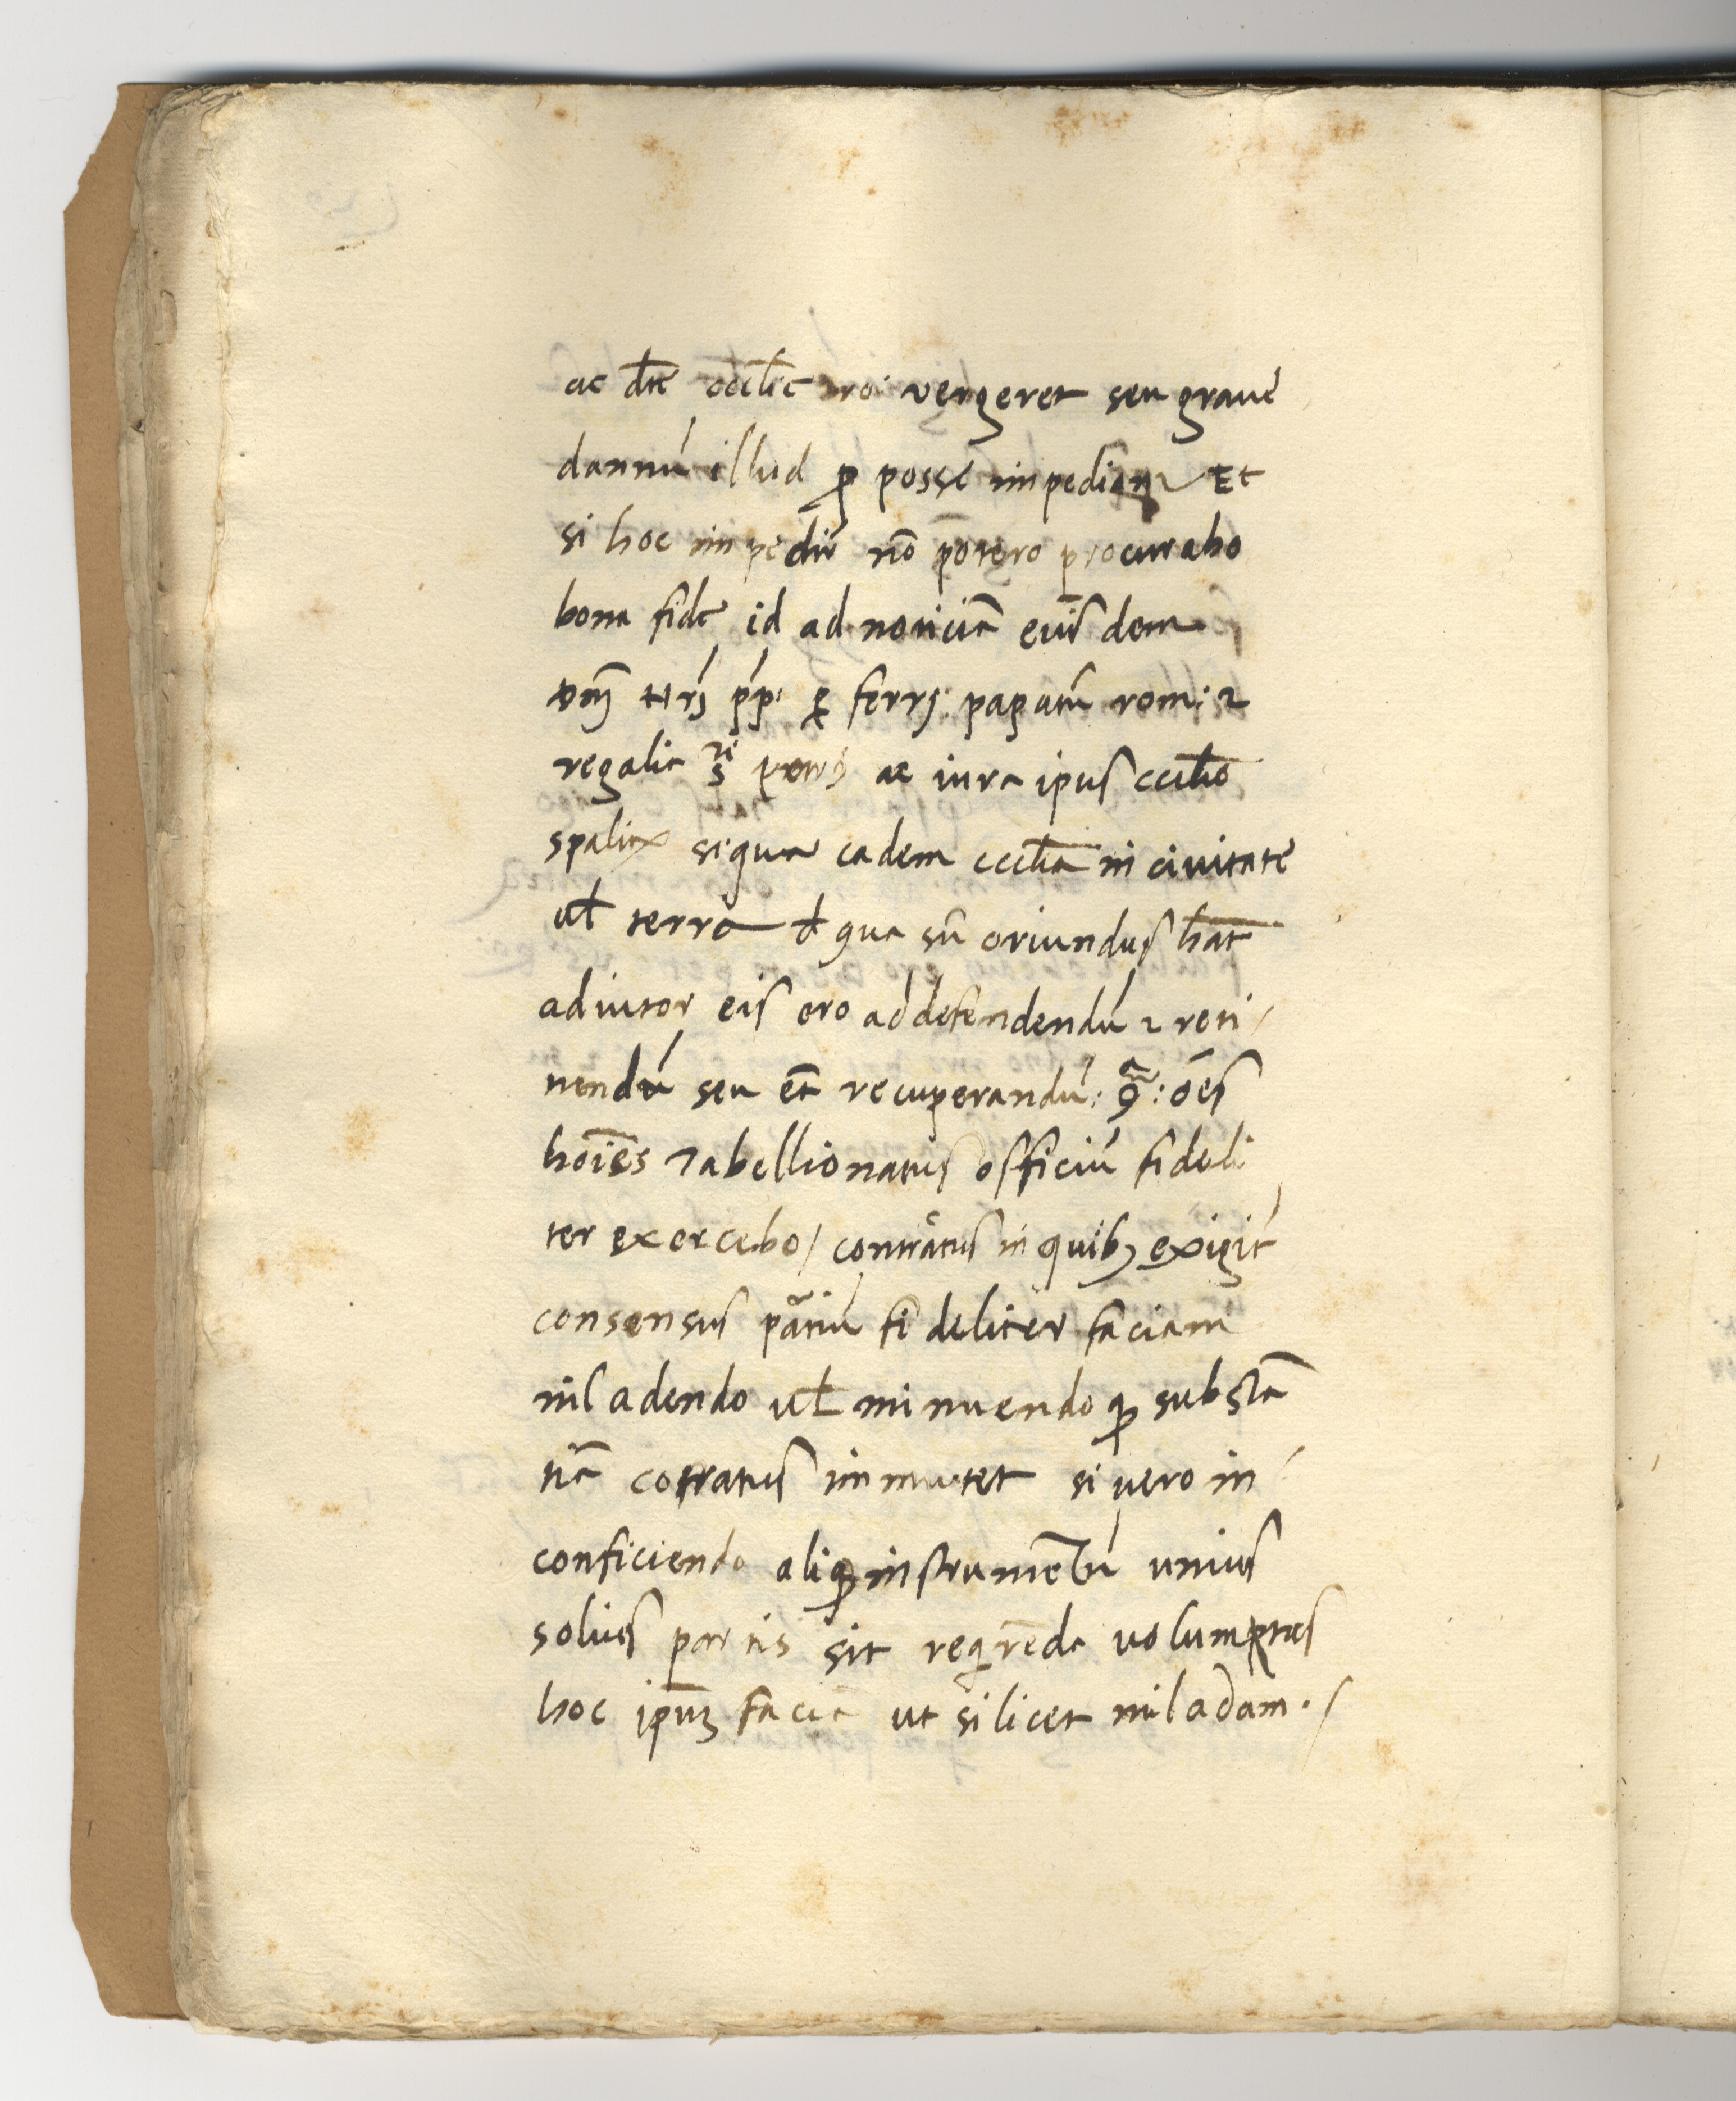 ac dn̄e eccl̄ie ro: vergeret seu grave
dannū illud ꝓ posse impediam Et
si hoc impedir̄ nō potero procurabo
bona fide id ad noticiā eius dem
dn̄j nr̄j pp: ꝑferrj: papatū rom: ⁊
regalia sti petri ac iura ipius eccl̄ie
spalit̄ siqua eadem eccl̄ia in civitate
vł terra d̄ qua sū oriundus hāt
adiutor eis ero ad defendendū ⁊ reti/
nendū seu et̄ recuperandū: 9ª: ōes
hoīes Tabellionatus officiū fideli
ter exercebo / contrātus in quibꝫ exigit̄
consensus partiū fideliter faciam
nil adendo vł minuendo qͩ substā
tiā cōtratus immutet si vero in
conficiendo aliqͩ instrumētū unius
solius partis sit reqrēda volumptas
hoc ipm̄ faciā ut silicet nil adam . /